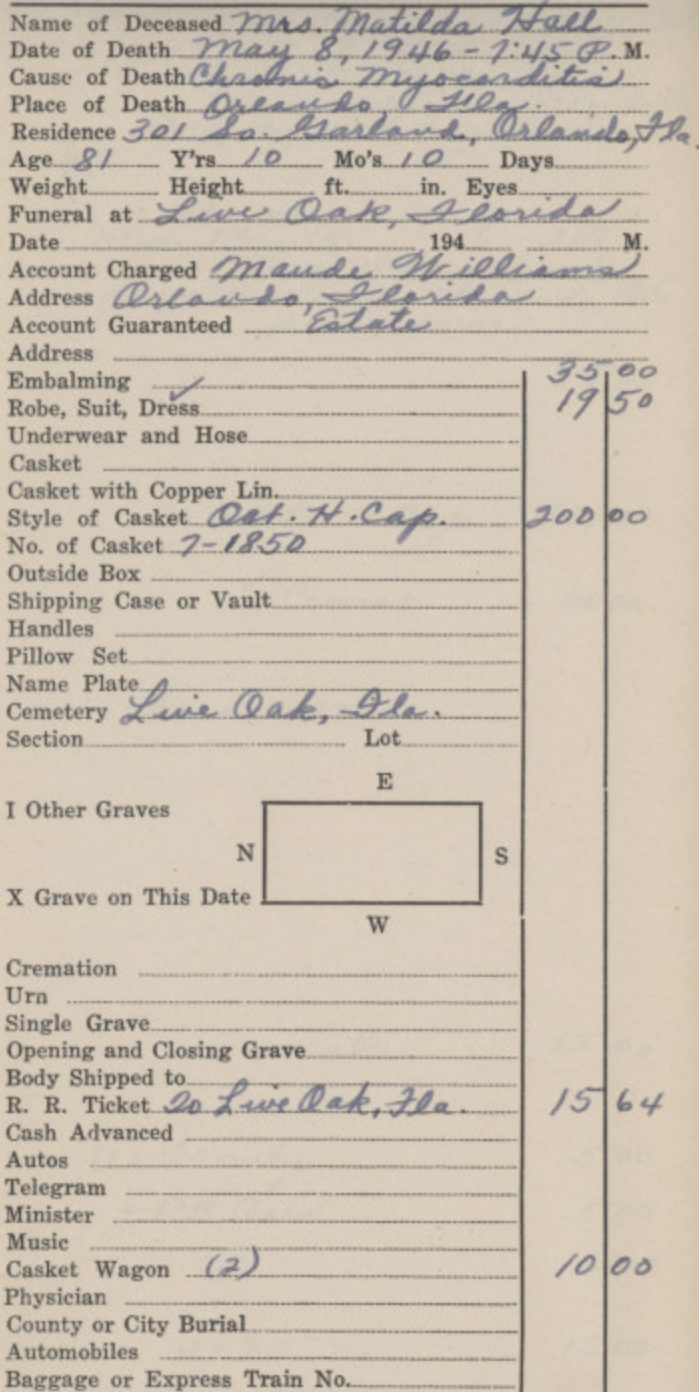 Name of Deceased Mrs. Matilda Hall
Date of Death May 8, 1946 - 1:45 P. M.
Cause of Death Chronic Myocarditis
Place of Death Orlando, Fla.
Residence 301 So. Garland, Orlando, Fla.
Age 81 Y'rs 10 Mo's 10 Days
Weight Height ft. in. Eyes
Funeral at Live Oak, Florida
Date 194 M.
Account Charged Maude Williams
Address Orlando, Florida
Account Guaranteed Estate
Address
Embalming 35 00
Robe, Suit, Dress 19 50
Underwear and Hose
Casket
Casket with Copper Lin.
Style of Casket Oct. H. Cap. 200 00
No. of Casket 7-1850
Outside Box
Shipping Case or Vault
Handles
Pillow Set
Name Plate
Cemetery Live Oak, Fla.
Section Lot
E
I Other Graves
N S
X Grave on This Date
W
Cremation
Urn
Single Grave
Opening and Closing Grave
Body Shipped to
R. R. Ticket To Live Oak, Fla. 15 64
Cash Advanced
Autos
Telegram
Minister
Music
Casket Wagon (2) 10 00
Physician
County or City Burial
Automobiles
Baggage or Express Train No.